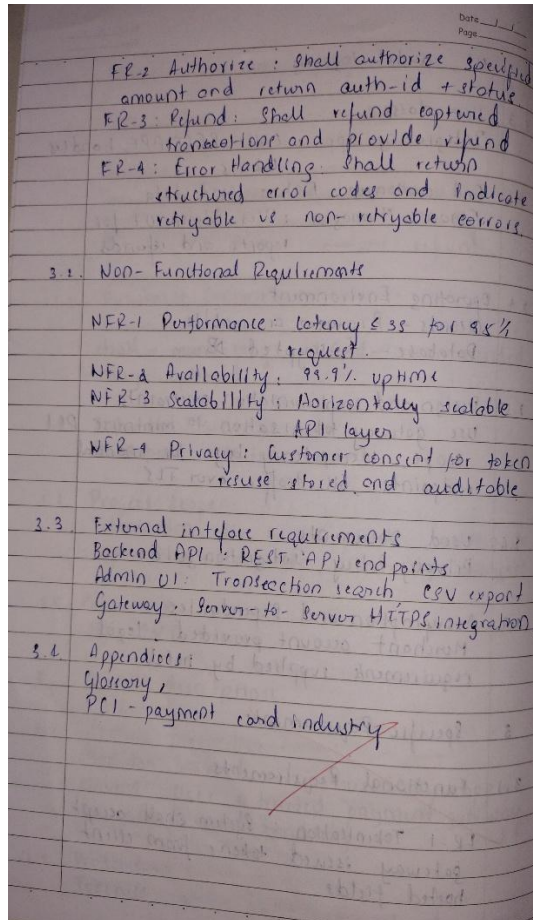 Date
Page
FR-2 Authorize : Shall authorize specified
amount and return auth-id + status.
FR-3 : Refund : Shall refund captured
transactions and provide refund
FR-4 : Error Handling. Shall return
structured error codes and indicate
retryable vs non-retryable errors.
3.2. Non-Functional Requirements
NFR-1 Performance : Latency ≤ 3s for 95%
request.
NFR-2 Availability : 99.9% uptime
NFR-3 Scalability : Horizontally scalable
API layer
NFR-4 Privacy : Customer consent for token
resuse stored and auditable
3.3 External inteface requirements
Backend API : REST API end points
Admin UI : Transecction search CSV export
Gateway. Server-to-server HTTPS integration
Appendices :
Glossary,
PCI - payment card industry